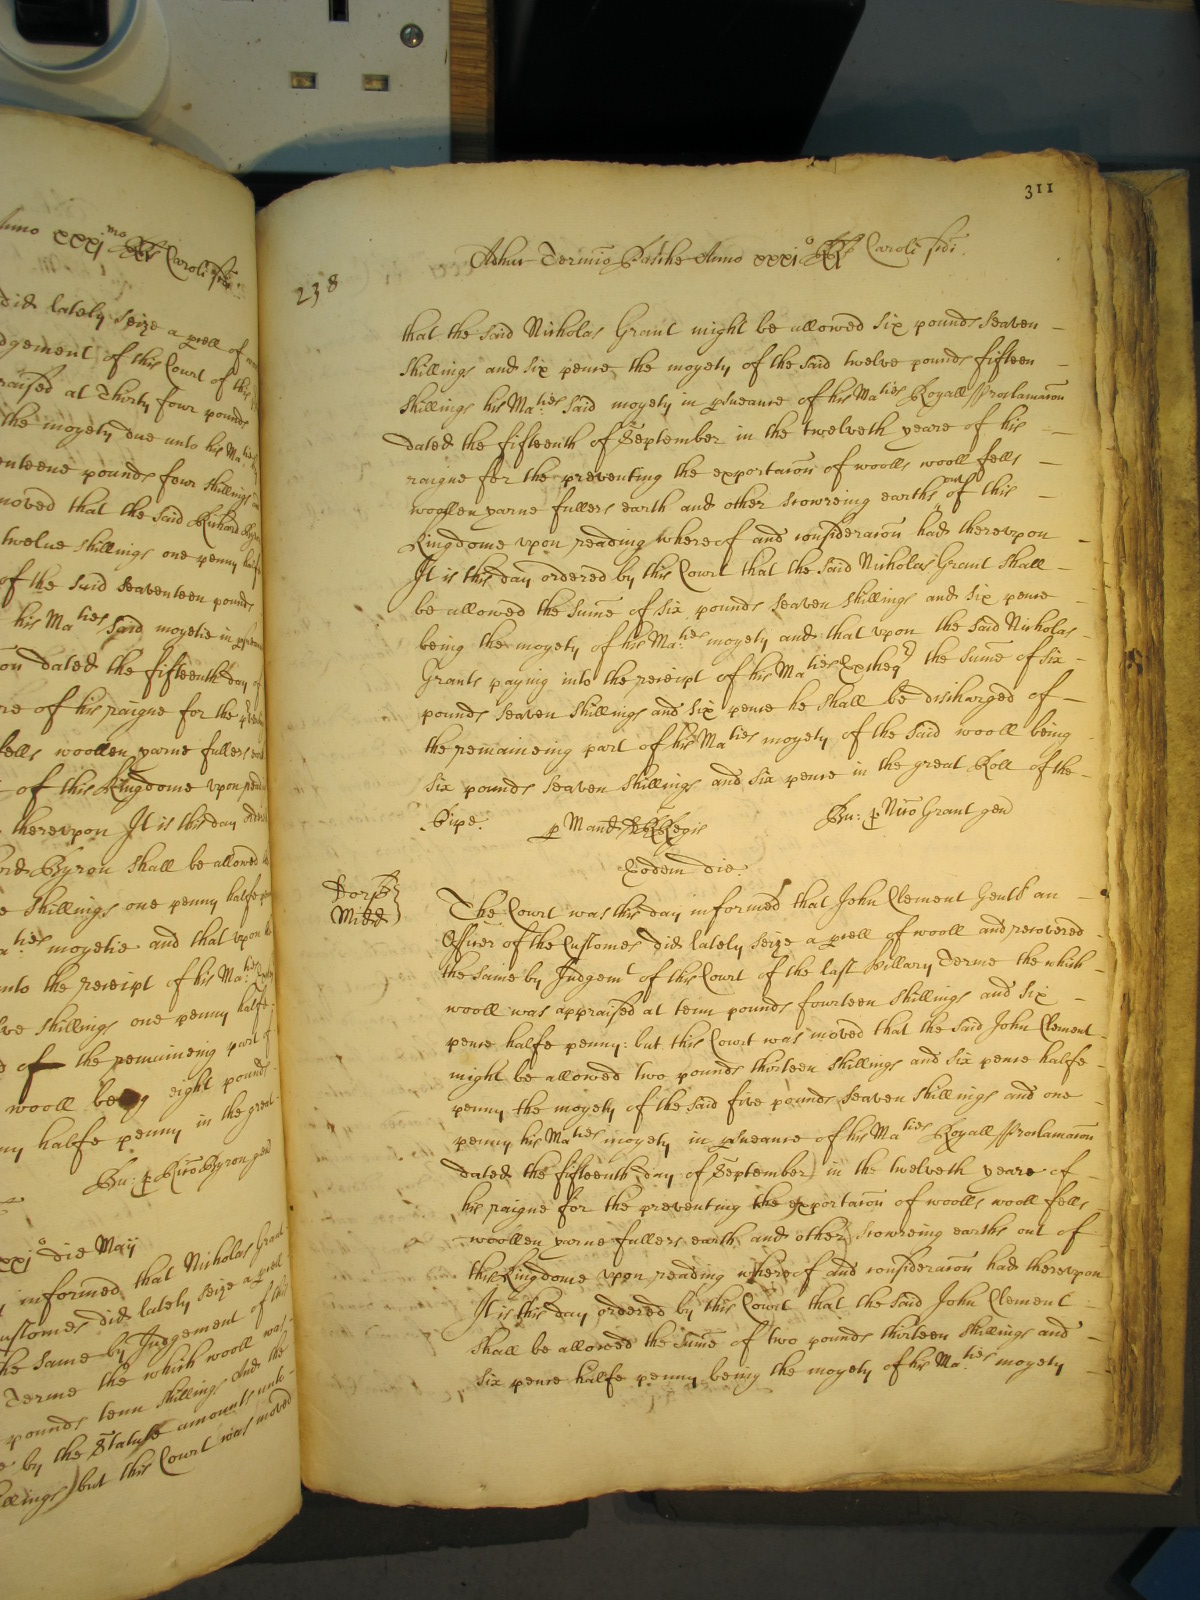 nno xxxi mo RRs Caroli sedi
did lately seize a pcell of
dgement of this Court of the
raised at Thirty four pounds
the moyety due unto his Ma
enteene pounds four shillings
moved that the said Richard Byron
twelve shillings one penny halfe
of the said seaventeen pounds
his Maties said moyetie in
on dated the fifteenth day of
re of his raigne for the
fells woollen yarne fullers
of this Kingdome vpon
therevpon It is this day
Byron shall be allowed
shillings one penny halfe
ties moyetie and that vpon
into the receipt of his Ma
ve shillings one penny halfe
of the remaineing part of
wooll being eight pounds
halfe penny in the great
Bu: p Rico Byron gen
xxxi o die Maij
informed that Nicholas Grant
ustomes did lately seize a pcell
he same by Judgement of this
Terme the which wooll was
pounds tenn shillings And the
by the Statute amounts unto
llings) but this Court was moved
311
238
Adhuc Termio Pasche Anno xxxi o RRs Caroli sedi.
that the said Nicholas Grant might be allowed six pounds seaven
shillings and six pence the moyety of the said twelve pounds fifteen
shillings his Ma:ties said moyety in psueance of his Maties Royall Proclamacon
dated the fifteenth of September in the twelveth yeare of his
raigne for the preventing the exportacon of woolls wooll fells
woollen yarne fullers earth and other scowreing earths out of this
Kingdome vpon reading whereof and consideracon had therevpon
It is this day ordered by this Court that the said Nicholas Grant shall
be allowed the sume of six pounds seaven shillings and six pence
being the moyety of his Ma:ties moyety and that vpon the said Nicholas
Grants paying into the receipt of his Maties Excheqr the sume of six
pounds seaven shillings and six pence he shall be discharged of
the remaineing part of his Maties moyety of the said wooll being
six pounds seaven shillings and six pence in the great Roll of the
Pipe: p Mand Regis Bu: p Nico Grant gen
Eodem die
Midd
The Court was this day informed that John Clement Gentl an
Officer of the Customes did lately seize a pcell of wooll and recovered
the same by Judgemt of this Court of the last Hillary Terme the which
wooll was appraised at tenn pounds fourteen shillings and six
pence halfe penny: but this Court was moved that the said John Clement
might be allowed two pounds thirteen shillings and six pence halfe
penny the moyety of the said five pounds seaven shillings and one
penny his Maties moyety in psueance of his Maties Royall Proclamacon
dated the fifteenth day of September in the twelveth yeare of
his raigne for the preventing the exportacon of woolls wooll fells
woollen yarne fullers earth and other scowreing earths out of
this Kingdome vpon reading whereof and consideracon had therevpon
It is this day ordered by this Court that the said John Clement
shall be allowed the sume of two pounds thirteen shillings and
six pence halfe penny being the moyety of his Ma:ties moyety